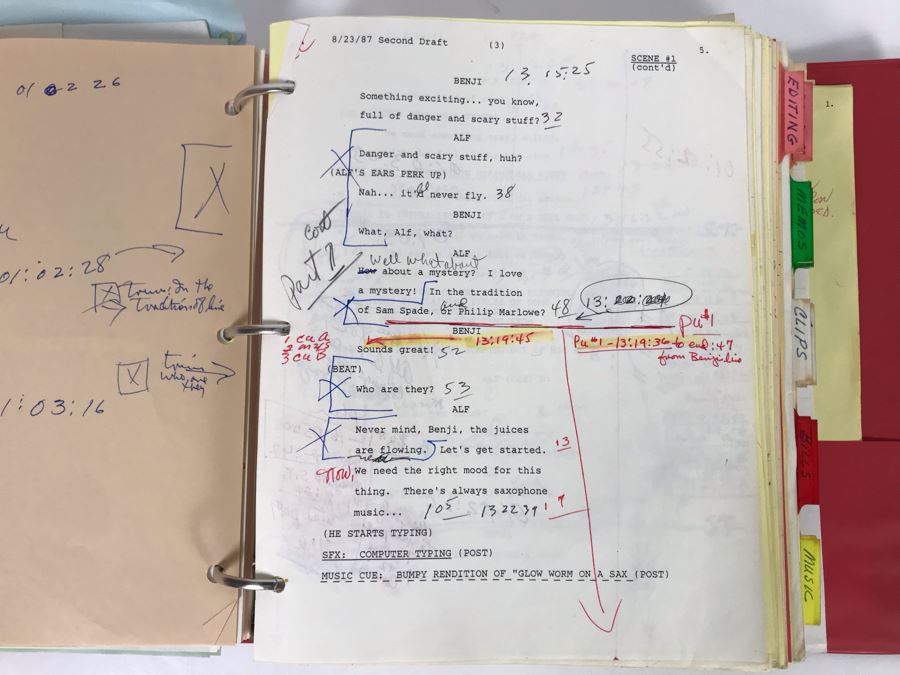 01 02 26
X
01:02:28
Trim: In the
tradition of line
X
trim
who are
they
1:03:16
8/23/87 Second Draft (3) 5.
SCENE #1
(cont'd)
BENJI 13 15:25
Something exciting... you know,
full of danger and scary stuff? 32
ALF
Danger and scary stuff, huh?
(ALF'S EARS PERK UP)
Nah... it'd never fly. 38
BENJI
What, Alf, what?
cont
Part 1
ALF
Well what about
How about a mystery? I love
a mystery! In the tradition
and
of Sam Spade, or Philip Marlowe? 48 13:
Pu #1
BENJI
1 cu A
2 on 2/5
3 cu B
13:19:45
Pu #1 - 13:19:36 to end :47
from Benji's line
Sounds great! 52
(BEAT)
Who are they? 53
ALF
Never mind, Benji, the juices
are flowing. Let's get started. 13
Now, We need the right mood for this
thing. There's always saxophone
music... 105 132239 17
(HE STARTS TYPING)
SFX: COMPUTER TYPING (POST)
MUSIC CUE: BUMPY RENDITION OF "GLOW WORM ON A SAX (POST)
EDITING
MEMOS
CLIPS
BILLS
MUSIC
1.